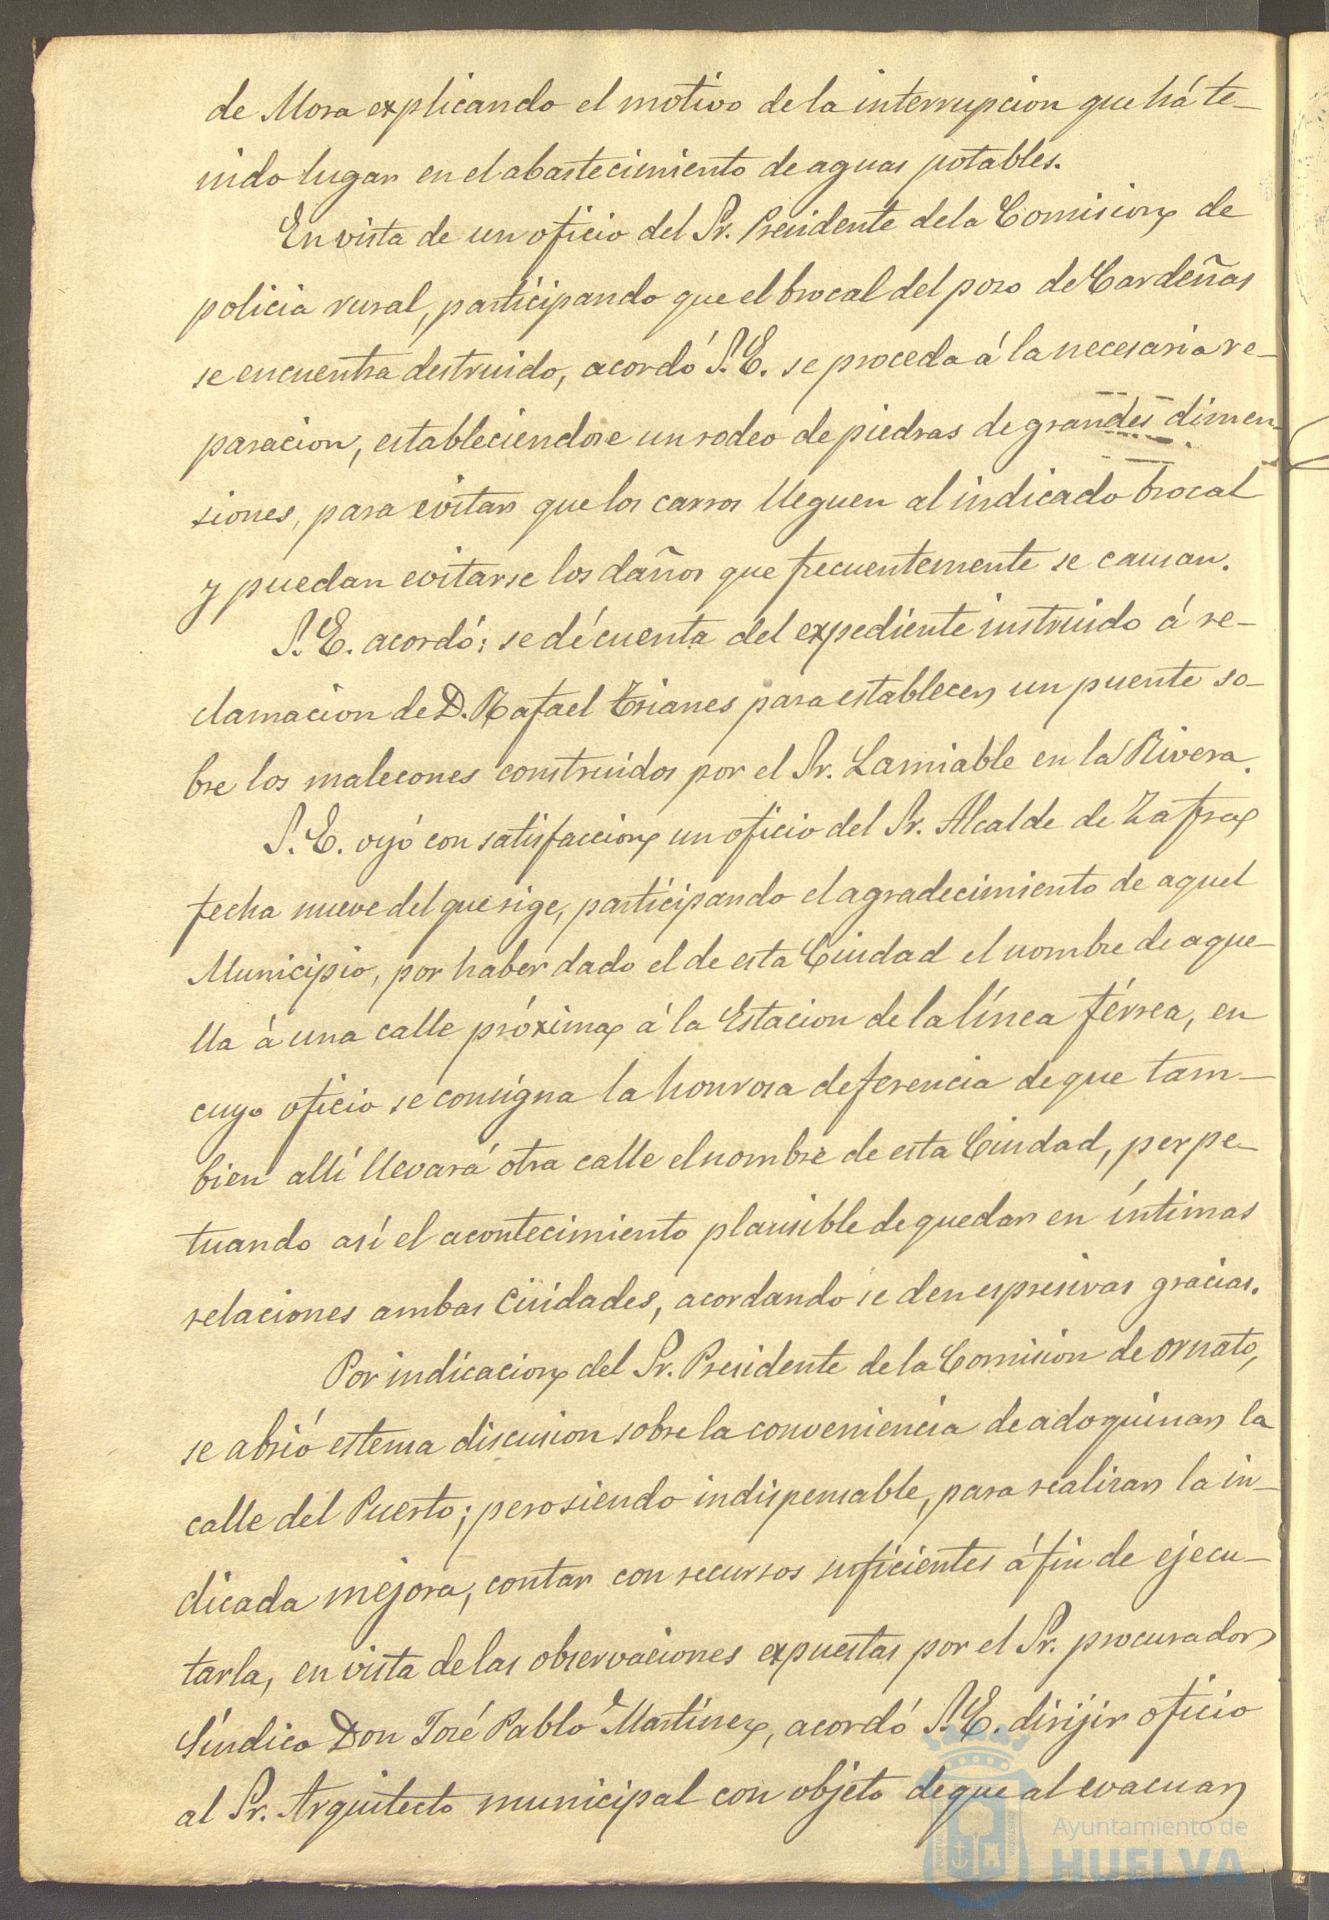 de Mora explicando el motivo de la interrupcion que há te-
nido lugar en el abastecimiento de aguas potables.
En vista de un oficio del Sr. Presidente de la Comision de
policia rural, participando que el brocal del pozo de Cardeñas
se encuentra destruido, acordó S.E. se proceda á la necesaria re-
paracion, estableciendose un rodeo de piedras de grandes dimen-
siones, para evitar que los carros lleguen al indicado brocal
y puedan evitarse los daños que frecuentemente se causan.
S.E. acordó: se dé cuenta del expediente instruido á re-
clamacion de D. Rafael Trianes para establecer un puente so-
bre los malecones construidos por el Sr. Lamiable en la Rivera.
S.E. oyó con satisfaccion un oficio del Sr. Alcalde de Zafra
fecha nueve del que rige, participando el agradecimiento de aquel
Municipio, por haber dado el de esta Ciudad el nombre de aque-
lla á una calle próxima á la Estacion de la línea férrea, en
cuyo oficio se consigna la honrosa deferencia de que tam-
bien allí llevará otra calle el nombre de esta Ciudad, perpe-
tuando así el acontecimiento plausible de quedar en íntimas
relaciones ambas Ciudades, acordando se den espresivas gracias.
Por indicacion del Sr. Presidente de la Comision de ornato,
se abrió estensa discusion sobre la conveniencia de adoquinar la
calle del Puerto; pero siendo indispensable, para realizar la in-
dicada mejora, contar con recursos suficientes á fin de ejecu-
tarla, en vista de las observaciones expuestas por el Sr. procurador
Síndico Don José Pablo Martinez, acordó S.E. dirijir oficio
al Sr. Arquitecto municipal con objeto de que al evacuar
Ayuntamiento de
HUELVA